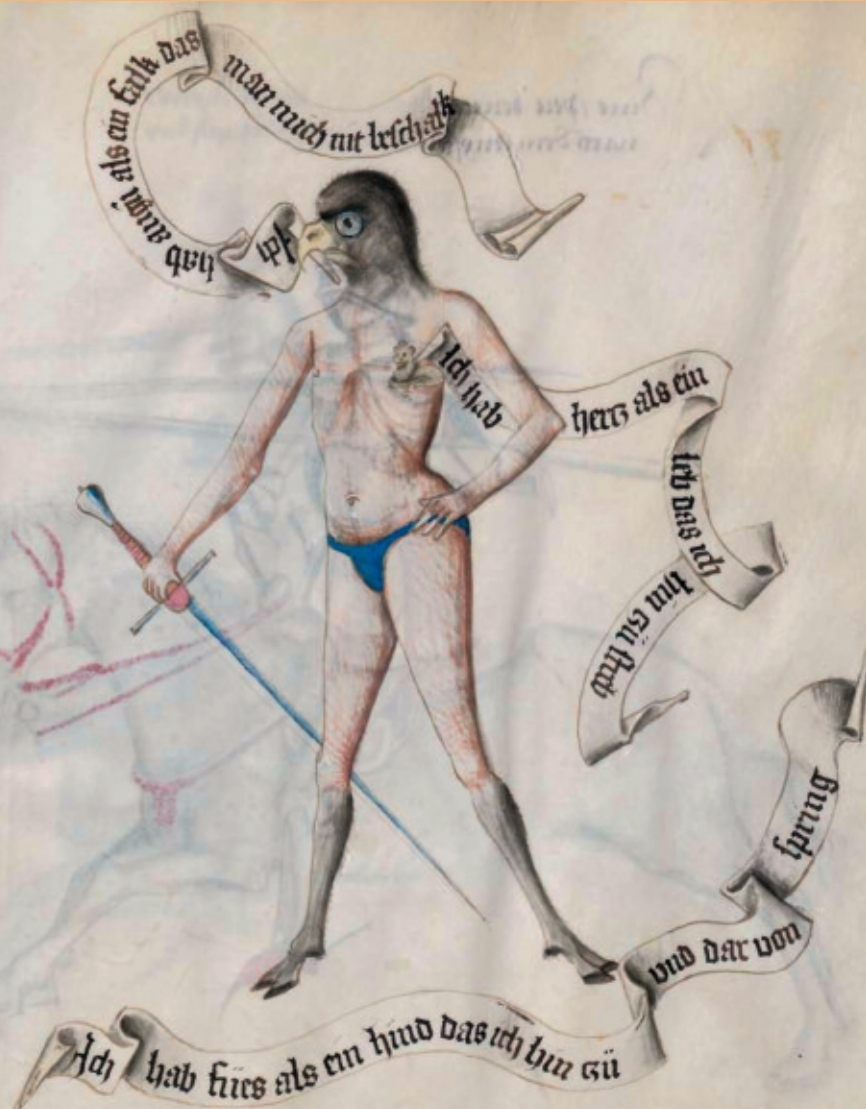 Ich hab augn als ein falk das man mich nit beschalk
Ich hab hertz als ein leb das ich hin zü streb
Ich hab fües als ein hind das ich hin zü und dar von spring